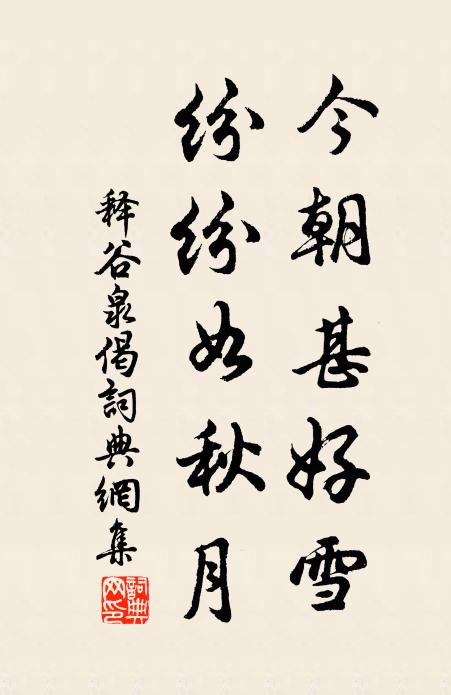 今朝甚好雪
紛紛如秋月
释谷泉偈詞典網集
詞典网印